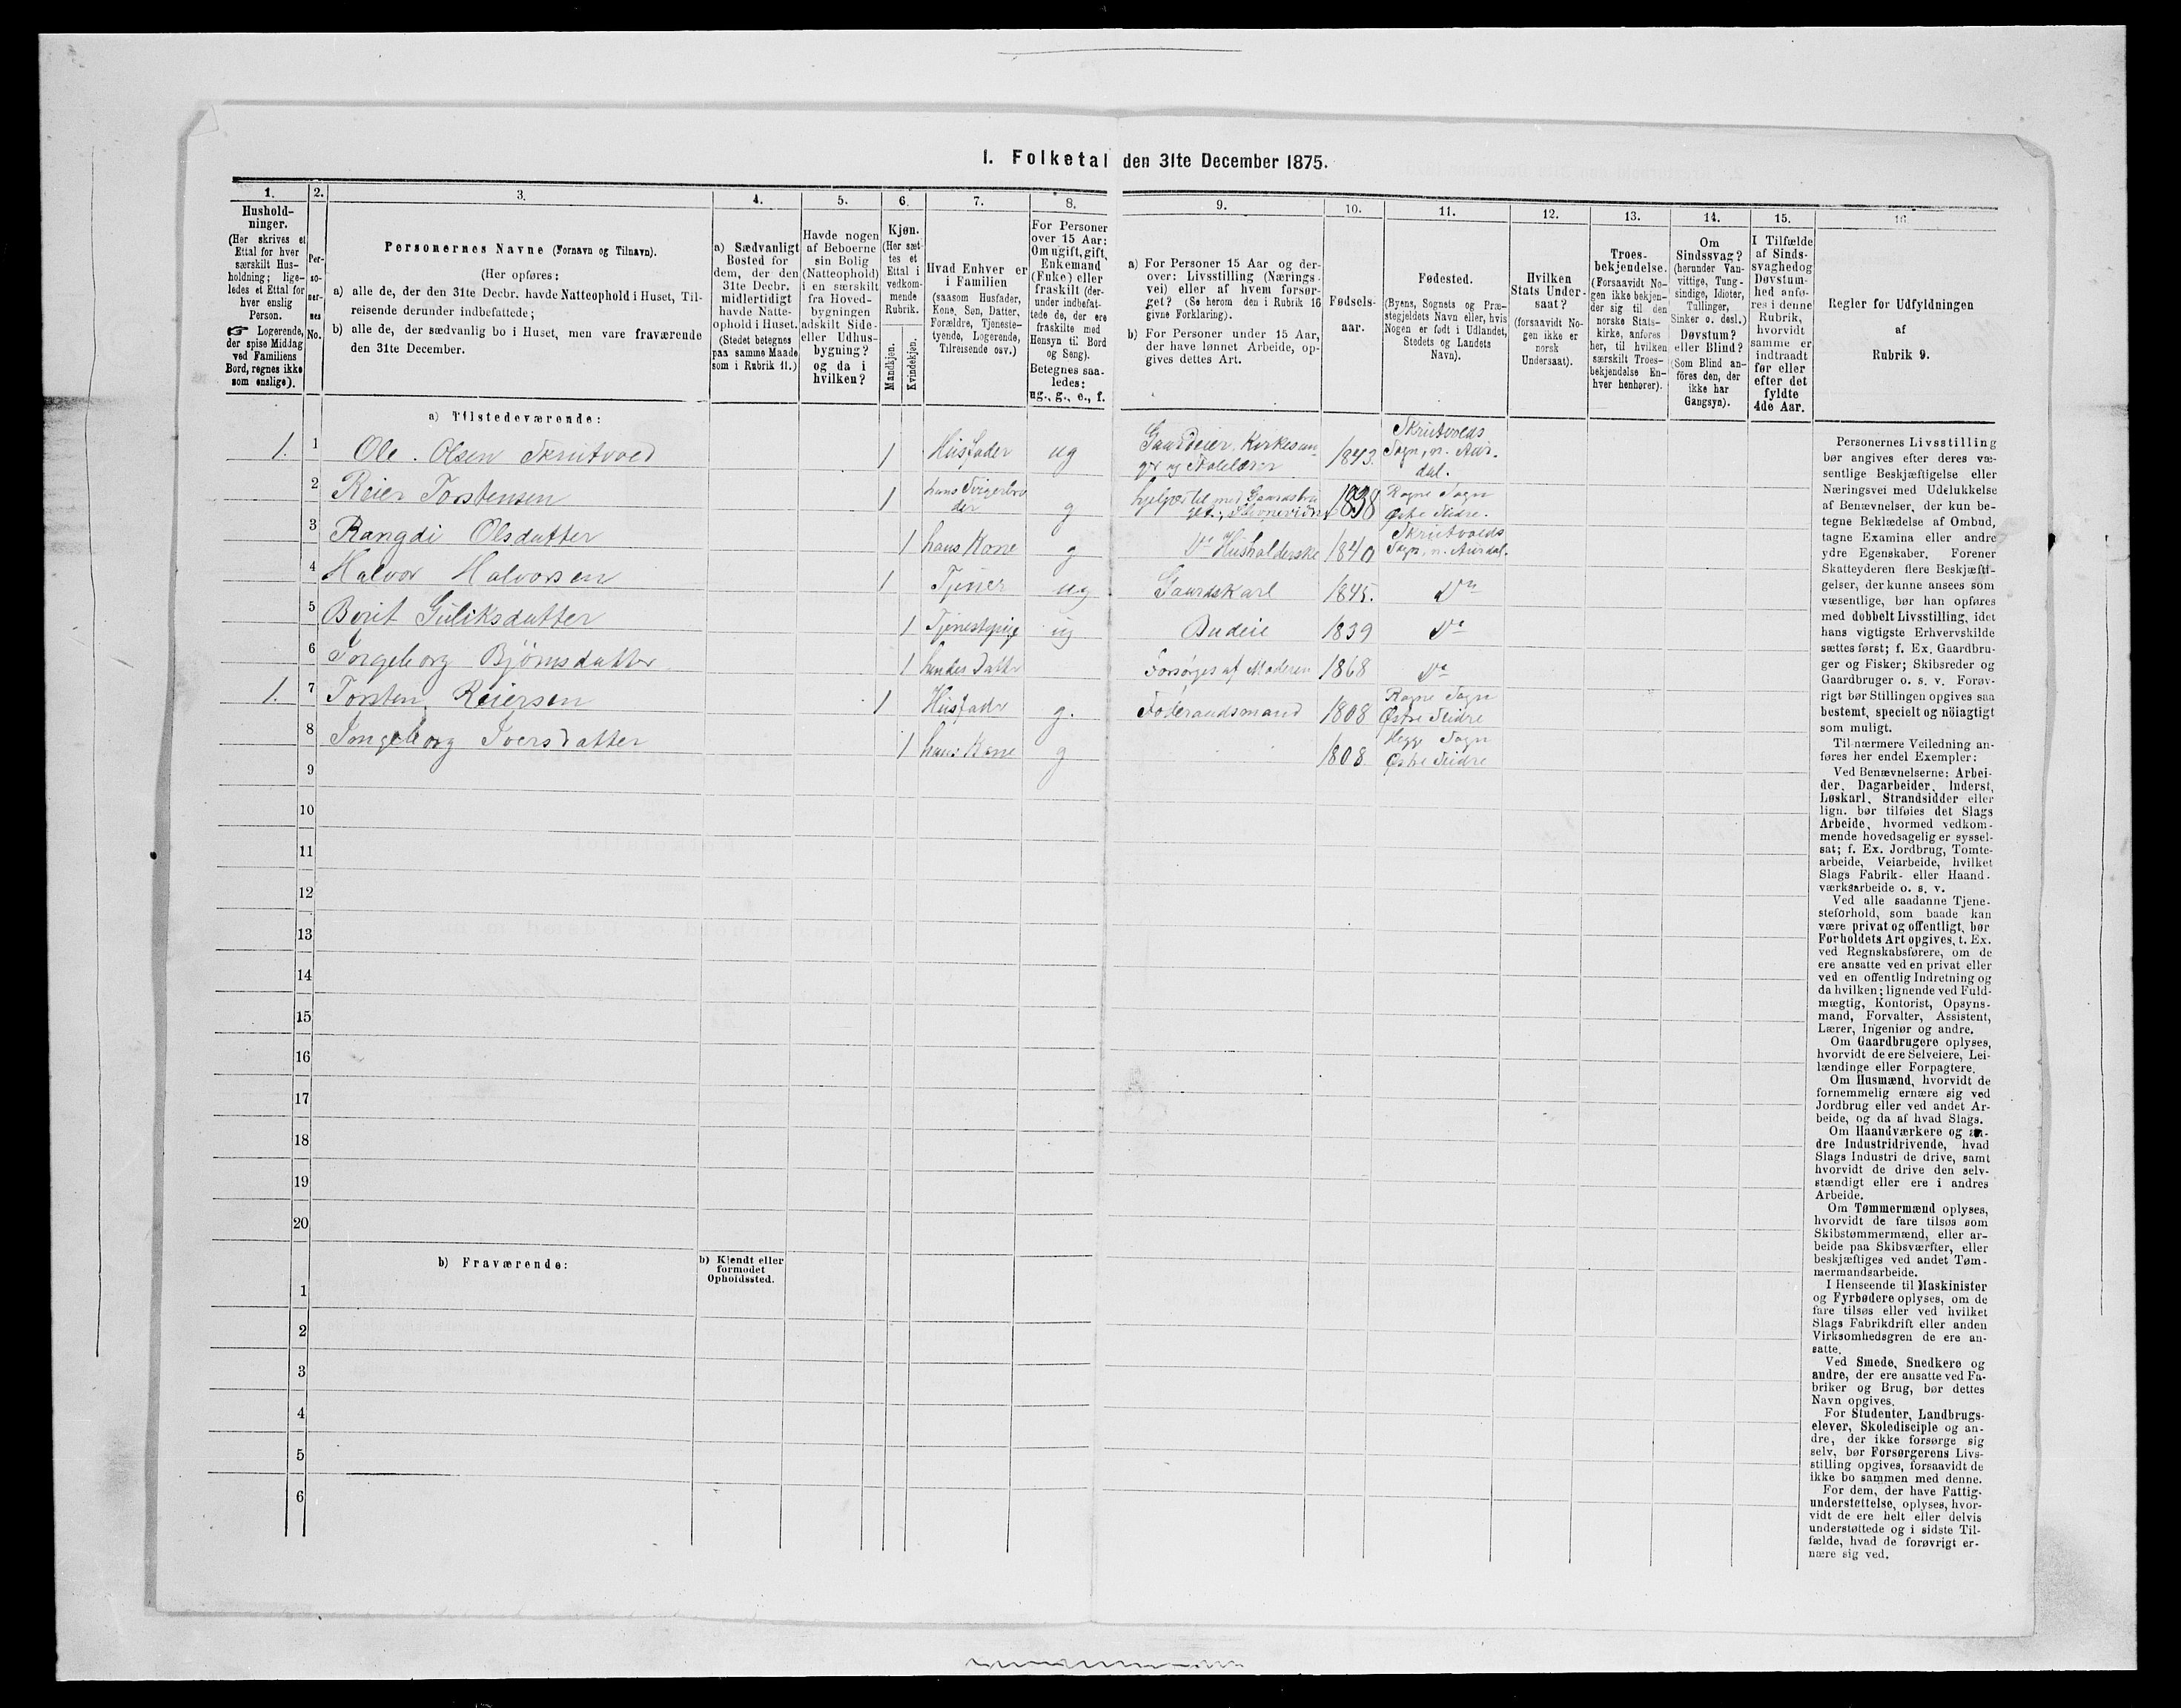 1. Folketal den 31te December 1875.
1.
Hushold-
ninger.
(Her skrives et
Ettal for hver
særskilt Hus-
holdning; lige-
ledes et Ettal for
hver enslig
Person.
☞ Logerende,
der spise Middag
ved Familiens
Bord, regnes ikke
som enslige).
2.
Per-
so-
ner-
nes
No.
3.
Personernes Navne (Fornavn og Tilnavn).
(Her opføres:
a) alle de, der den 31te Decbr. havde Natteophold i Huset, Til-
reisende derunder indbefattede;
b) alle de, der sædvanlig bo i Huset, men vare fraværende
den 31te December.
4.
a) Sædvanligt
Bosted for
dem, der den
31te Decbr.
midlertidigt
havde Natte-
ophold i Huset.
(Stedet betegnes
paa samme Maade
som i Rubrik 11.)
5.
Havde nogen
af Beboerne
sin Bolig
(Natteophold)
i en særskilt
fra Hoved-
bygningen
adskilt Side-
eller Udhus-
bygning?
og da i
hvilken?
6.
Kjøn.
(Her sæt-
tes et
Ettal i
vedkom-
mende
Rubrik.
Mandkjøn.
Kvindekjøn.
7.
Hvad Enhver er
i Familien
(saasom Husfader,
Kone, Søn, Datter,
Forældre, Tjeneste-
tyende, Logerende,
Tilreisende osv.)
8.
For Personer
over 15 Aar:
Om ugift, gift,
Enkemand
(Enke) eller
fraskilt (der-
under indbefat-
tede de, der ere
fraskilte med
Hensyn til Bord
og Seng).
Betegnes saa-
ledes:
ug., g., e., f.
9.
a) For Personer 15 Aar og der-
over: Livsstilling (Nærings-
vei) eller af hvem forsør-
get? (Se herom den i Rubrik 16
givne Forklaring).
b) For Personer under 15 Aar,
der have lønnet Arbeide, op-
gives dettes Art.
10.
Fødsels-
aar.
11.
Fødested.
(Byens, Sognets og Præ-
stegjeldets Navn eller, hvis
Nogen er født i Udlandet,
Stedets og Landets
Navn).
12.
Hvilken
Stats Under-
saat?
(forsaavidt No-
gen ikke er
norsk
Undersaat).
13.
Troes-
bekjendelse.
(Forsaavidt No-
gen ikke bekjen-
der sig til den
norske Stats-
kirke, anføres
her, til hvilken
særskilt Troes-
bekjendelse En-
hver henhører).
14.
Om
Sindssvag?
(herunder Van-
vittige, Tung-
sindige, Idioter,
Tullinger,
Sinker o. desl.)
Døvstum?
eller Blind?
(Som Blind an-
føres den, der
ikke har
Gangsyn).
15.
I Tilfælde
af Sinds-
svaghed og
Døvstum-
hed anfø-
res i denne
Rubrik,
hvorvidt
samme er
indtraadt
før eller
efter det
fyldte
4de Aar.
16
Regler for Udfyldningen
af
Rubrik 9.
a) Tilstedeværende:
1. 1 Ole Olsen Skrutvold 1 Husfader ug Gaardeier, Kirkesan-
ger og Skolelærer 1843. Skrutvolds
Sogn, n. Aur-
dal.
2 Reier Torstensen 1 hans Svigerbro
der g hjelper til med Gaardsbru
get, 1838 Rogne Sogn
Østre Slidre.
3 Rangdi Olsdatter 1 hans Kone g Do Husholderske 1840 Skrutvolds
Sogn, n. Aurdal.
4 Halvor Halvorsen 1 Tjener ug Gaardskarl 1845. Do
5 Berit Guliksdatter 1 Tjenestepige ug Budeie 1839 Do
6 Ingeborg Bjørnsdatter 1 hendes Datter Forsørges af Moderen 1868 Do
1. 7 Torsten Reiersen 1 Husfader g. Føderaadsmand 1808 Rogne Sogn
Østre Slidre
8 Ingeborg Iversdatter 1 hans Kone g 1808 Hegge Sogn
Østre Slidre
9
10
11
12
13
14
15
16
17
18
19
20
b) Fraværende:
b) Kjendt eller
formodet
Opholdssted.
1
2
3
4
5
6
Personernes Livsstilling
bør angives efter deres væ-
sentlige Beskjæftigelse eller
Næringsvei med Udelukkelse
af Benævnelser, der kun be-
tegne Beklædelse af Ombud,
tagne Examina eller andre
ydre Egenskaber. Forener
Skatteyderen flere Beskjæfti-
gelser, der kunne ansees som
væsentlige, bør han opføres
med dobbelt Livsstilling, idet
hans vigtigste Erhvervskilde
sættes først; f. Ex. Gaardbru-
ger og Fisker; Skibsreder og
Gaardbruger o. s. v. Forøv-
rigt bør Stillingen opgives saa
bestemt, specielt og nöiagtigt
som muligt.
Til nærmere Veiledning an-
føres her endel Exempler:
Ved Benævnelserne: Arbei-
der, Dagarbeider, Inderst,
Løskarl, Strandsidder eller
lign. bør tilføies det Slags
Arbeide, hvormed vedkom-
mende hovedsagelig er syssel-
sat; f. Ex. Jordbrug, Tomte-
arbeide, Veiarbeide, hvilket
Slags Fabrik- eller Haand-
værksarbeide o. s. v.
Ved alle saadanne Tjene-
steforhold, som baade kan
være privat og offentligt, bør
Forholdets Art opgives, t. Ex.
ved Regnskabsførere, om de
ere ansatte ved en privat eller
ved en offentlig Indretning og
da hvilken; lignende ved Fuld-
mægtig, Kontorist, Opsyns-
mand, Forvalter, Assistent,
Lærer, Ingeniør og andre.
Om Gaardbrugere oplyses,
hvorvidt de ere Selveiere, Lei-
lændinge eller Forpagtere.
Om Husmænd, hvorvidt de
fornemmelig ernære sig ved
Jordbrug eller ved andet Ar-
beide, og da af hvad Slags.
Om Haandværkere og an-
dre Industridrivende, hvad
Slags Industri de drive, samt
hvorvidt de drive den selv-
stændigt eller ere i andres
Arbeide.
Om Tømmermænd oplyses,
hvorvidt de fare tilsøs som
Skibstømmermænd, eller ar-
beide paa Skibsværfter, eller
beskjæftiges ved andet Tøm-
mermandsarbeide.
I Henseende til Maskinister
og Fyrbødere oplyses, om de
fare tilsøs eller ved hvilket
Slags Fabrikdrift eller anden
Virksomhedsgren de ere an-
satte.
Ved Smede, Snedkere og
andre, der ere ansatte ved Fa-
briker og Brug, bør dettes
Navn opgives.
For Studenter, Landbrugs-
elever, Skoledisciple og an-
dre, der ikke forsørge sig
selv, bør Forsørgerens Livs-
stilling opgives, forsaavidt de
ikke bo sammen med denne.
For dem, der have Fattig-
understøttelse, oplyses, hvor-
vidt de ere helt eller delvis
understøttede og i sidste Til-
fælde, hvad de forøvrigt er-
nære sig ved.